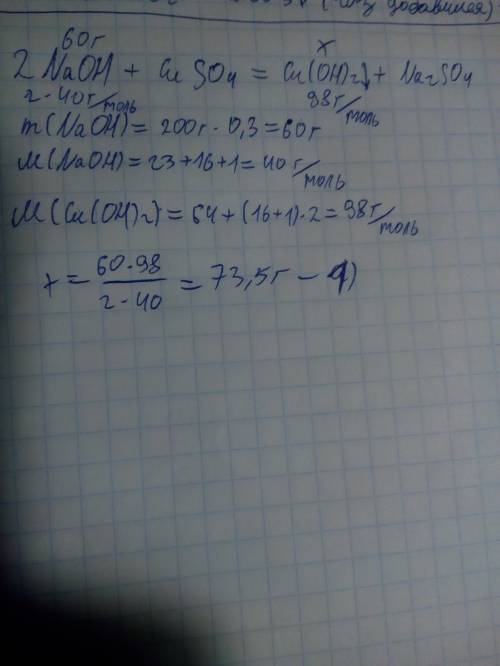 (               добавился)
60г                                        x
2 NaOH + CuSO4 = Cu(OH)2↓ + Na2SO4
2·40г/моль                              98г/моль
m(NaOH) = 200г · 0,3 = 60г
M(NaOH) = 23+16+1 = 40 г/моль
M(Cu(OH)2) = 64 + (16+1)·2 = 98 г/моль
x = 60·98 / 2·40 = 73,5г – 4)